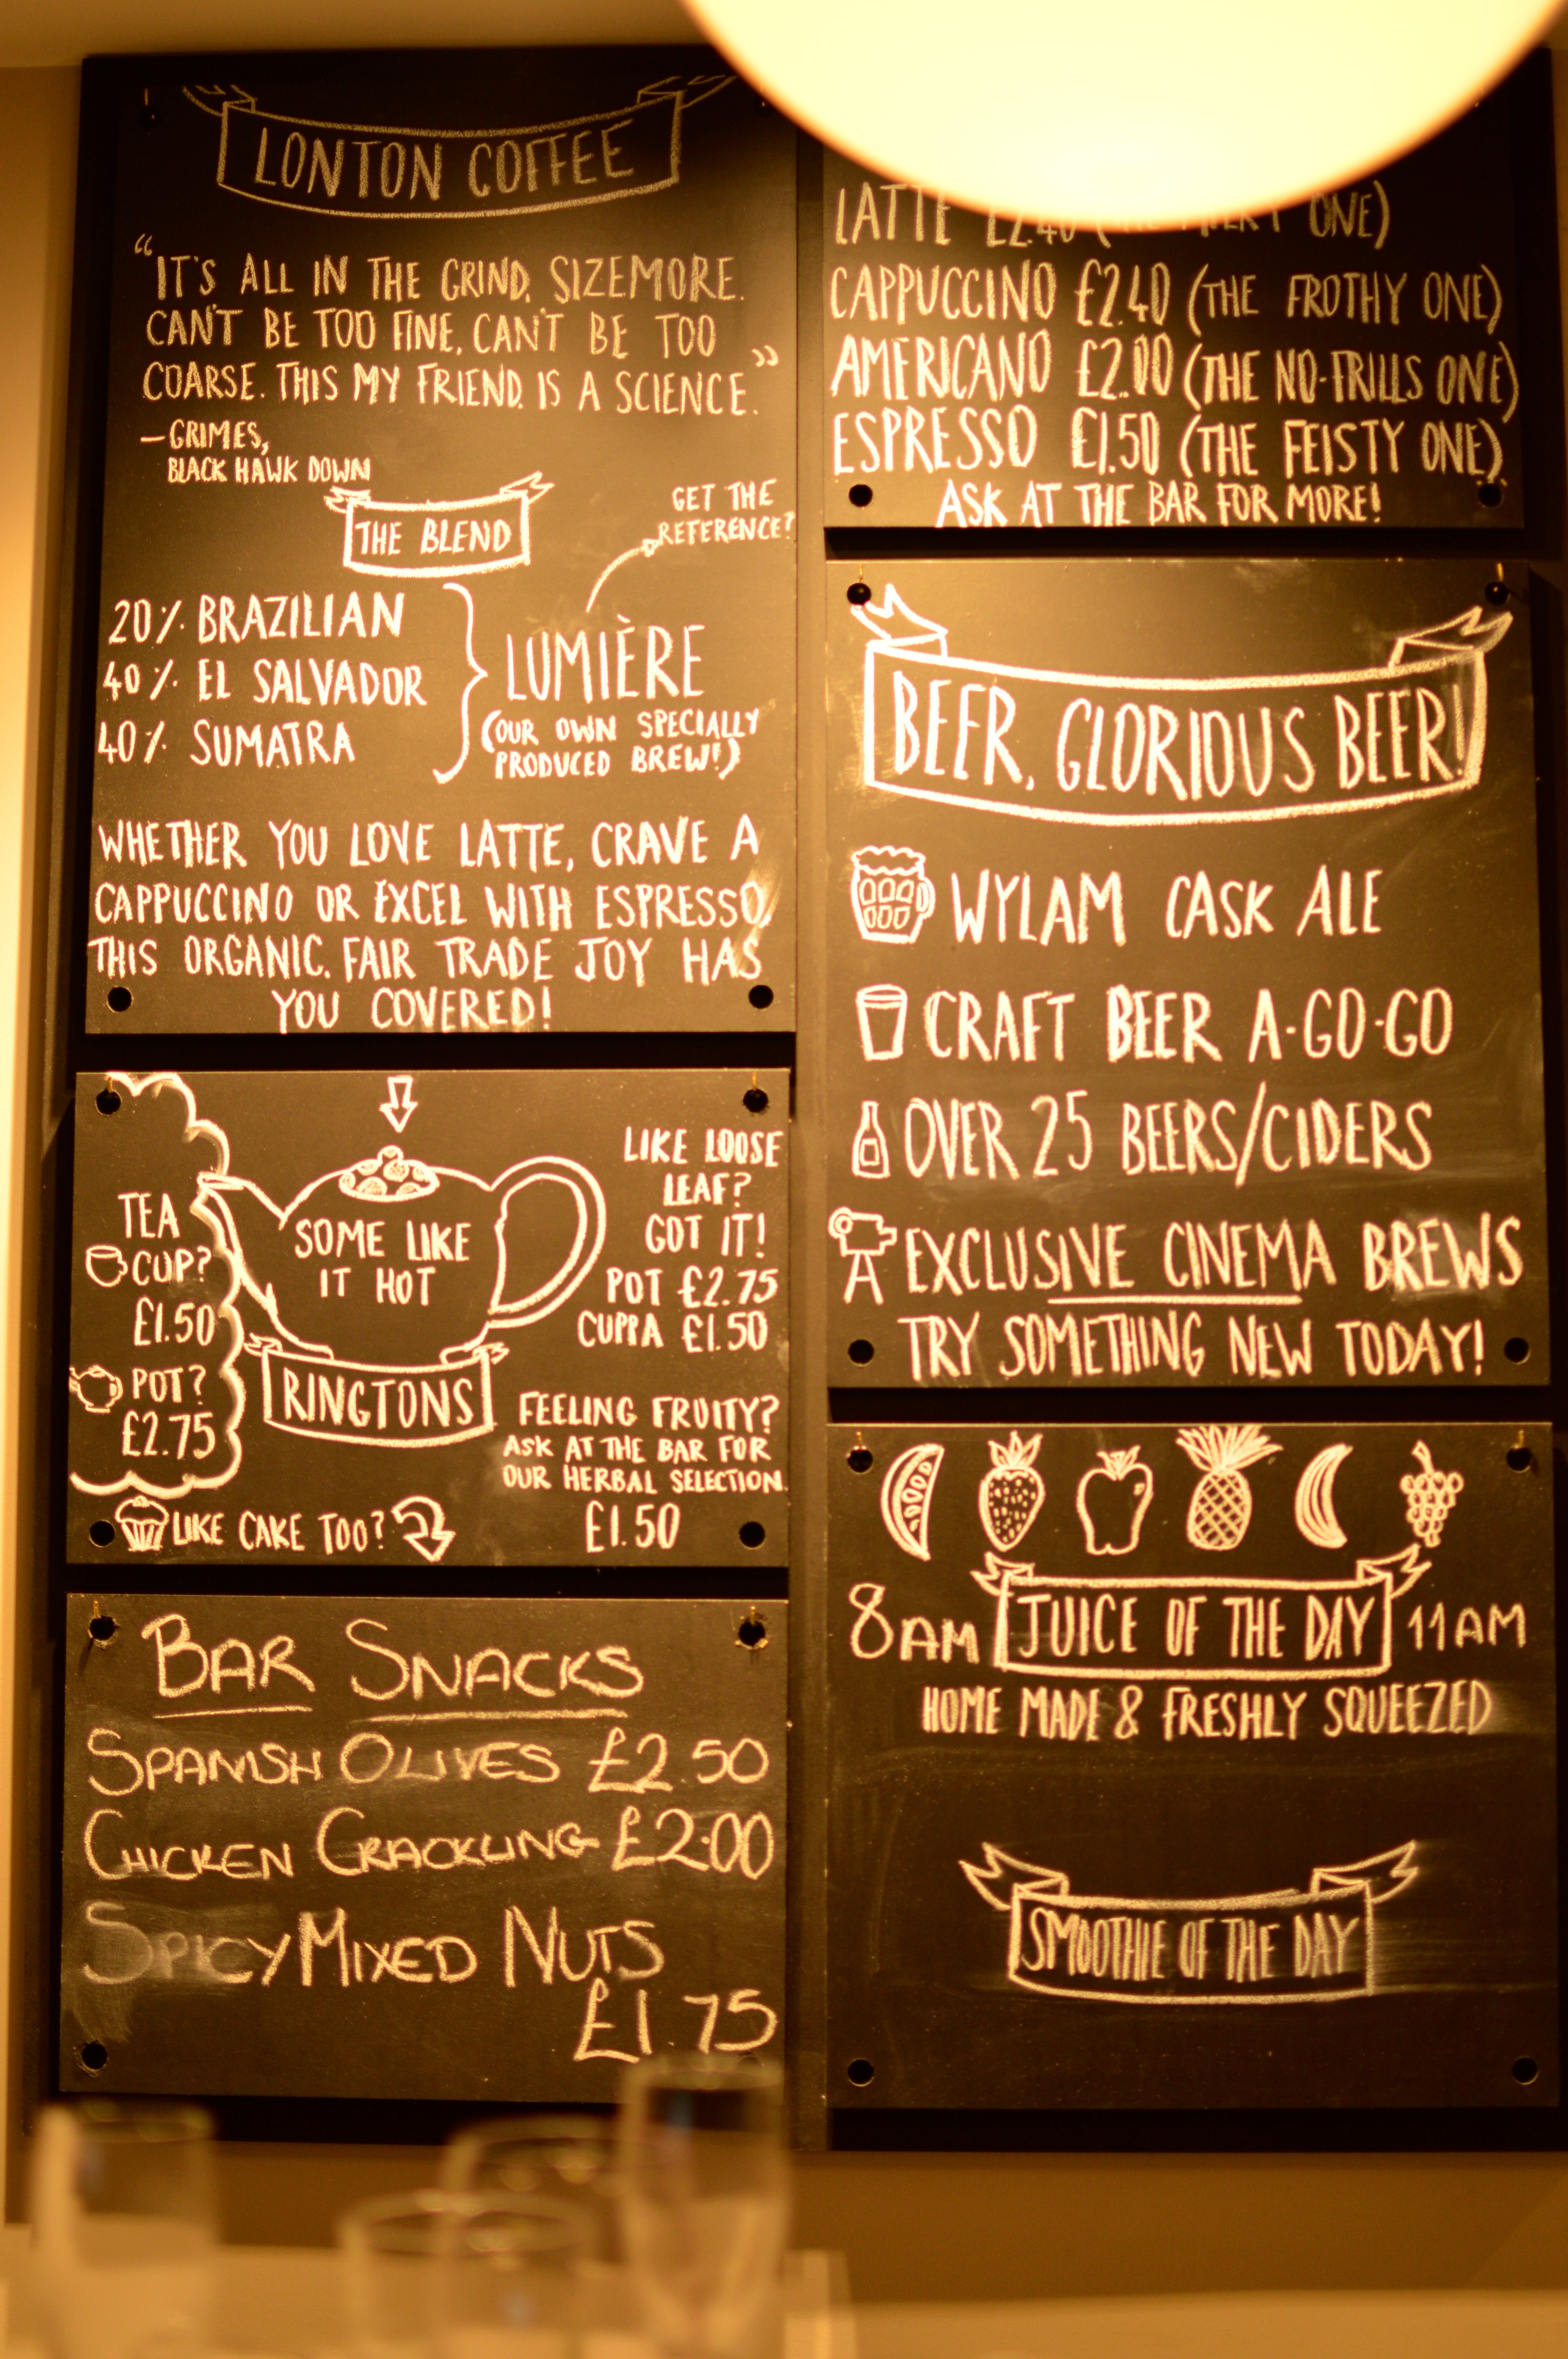 LONTON COFFEE
"IT'S ALL IN THE GRIND, SIZEMORE.
CAN'T BE TOO FINE, CAN'T BE TOO
COARSE. THIS MY FRIEND, IS A SCIENCE."
-GRIMES,
BLACK HAWK DOWN
THE BLEND
GET THE
REFERENCE?
20% BRAZILIAN
40% EL SALVADOR
40% SUMATRA
LUMIÈRE
(OUR OWN SPECIALLY
PRODUCED BREW!)
WHETHER YOU LOVE LATTE, CRAVE A
CAPPUCCINO OR EXCEL WITH ESPRESSO,
THIS ORGANIC, FAIR TRADE JOY HAS
YOU COVERED!
TEA
CUP?
£1.50
POT?
£2.75
SOME LIKE
IT HOT
RINGTONS
LIKE LOOSE
LEAF?
GOT IT!
POT £2.75
CUPPA £1.50
FEELING FRUITY?
ASK AT THE BAR FOR
OUR HERBAL SELECTION
£1.50
LIKE CAKE TOO?
BAR SNACKS
SPANISH OLIVES £2.50
CHICKEN CRACKLING £2.00
SPICY MIXED NUTS
£1.75
LATTE £2.40 ( ONE)
CAPPUCCINO £2.40 (THE FROTHY ONE)
AMERICANO £2.00 (THE NO-FRILLS ONE)
ESPRESSO £1.50 (THE FEISTY ONE)
ASK AT THE BAR FOR MORE!
BEER, GLORIOUS BEER!
WYLAM CASK ALE
CRAFT BEER A-GO-GO
OVER 25 BEERS/CIDERS
EXCLUSIVE CINEMA BREWS
TRY SOMETHING NEW TODAY!
8AM JUICE OF THE DAY 11AM
HOME MADE & FRESHLY SQUEEZED
SMOOTHIE OF THE DAY